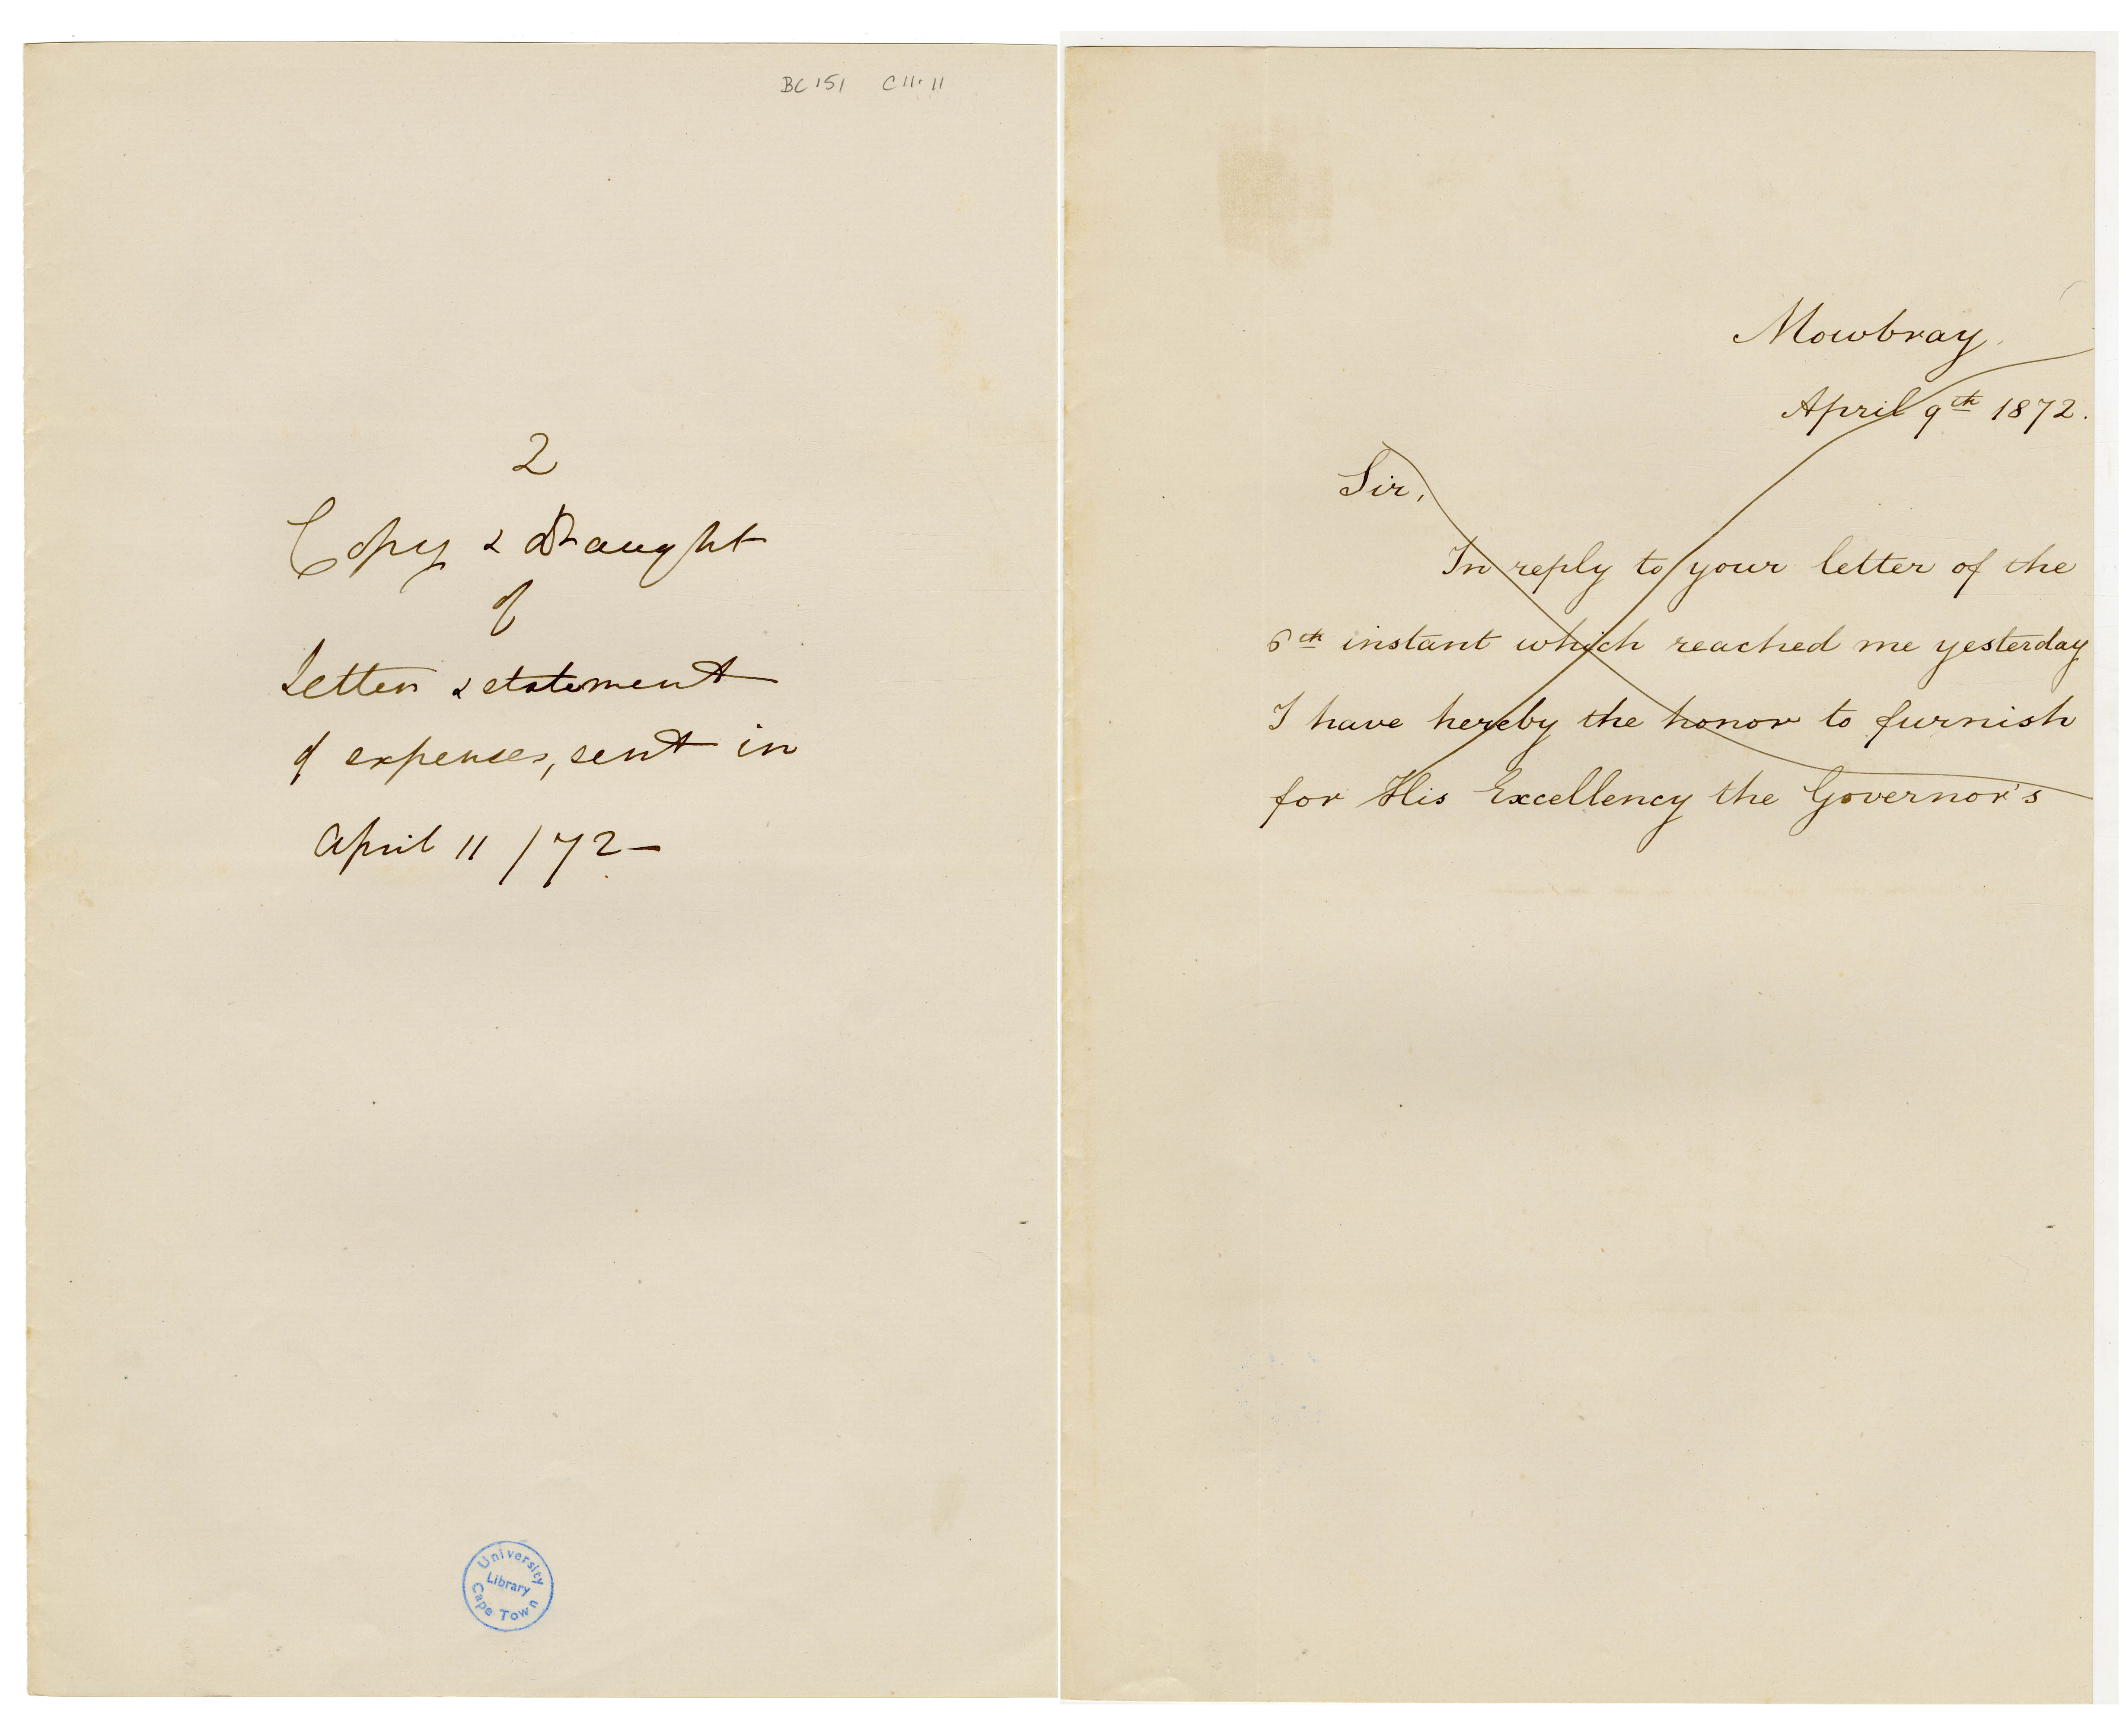 BC 151 C11.11
2
Copy & Draught
of
Letter & statement
of expenses, sent in
April 11 /72—
University
Library
Cape Town
Mowbray
April 9th 1872.
Sir,
In reply to your letter of the
6th instant which reached me yesterday
I have hereby the honor to furnish
for His Excellency the Governor's